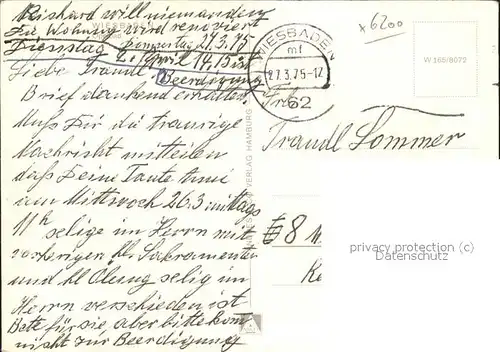 Richard will niemanden
Die Wohnung wird renoviert
Donnerstag 27.3.75
Dienstag 2. April 14.15 ist
Liebe Traudl! Beerdigung
Brief dankend erhalten.
Muß Dir die traurige
Nachricht mitteilen
daß Deine Tante
am Mittwoch 26.3 mittags
11h selig im Herrn mit
vorherigen hl. Sakramenten
und hl Ölung selig im
Herrn verschieden ist
Bete für sie, aber bitte komm
nicht zur Beerdigung
WIESBADEN
mf
27.3.75-12
62
x6200
W 165/8072
VERLAG HAMBURG
Frl.
Traudl Sommer
8 M
privacy protection (c)
Datenschutz